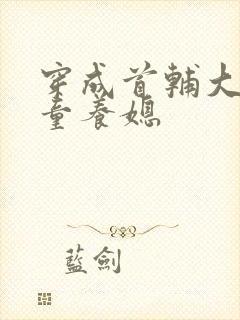 穿成首輔大
童養媳
藍劍